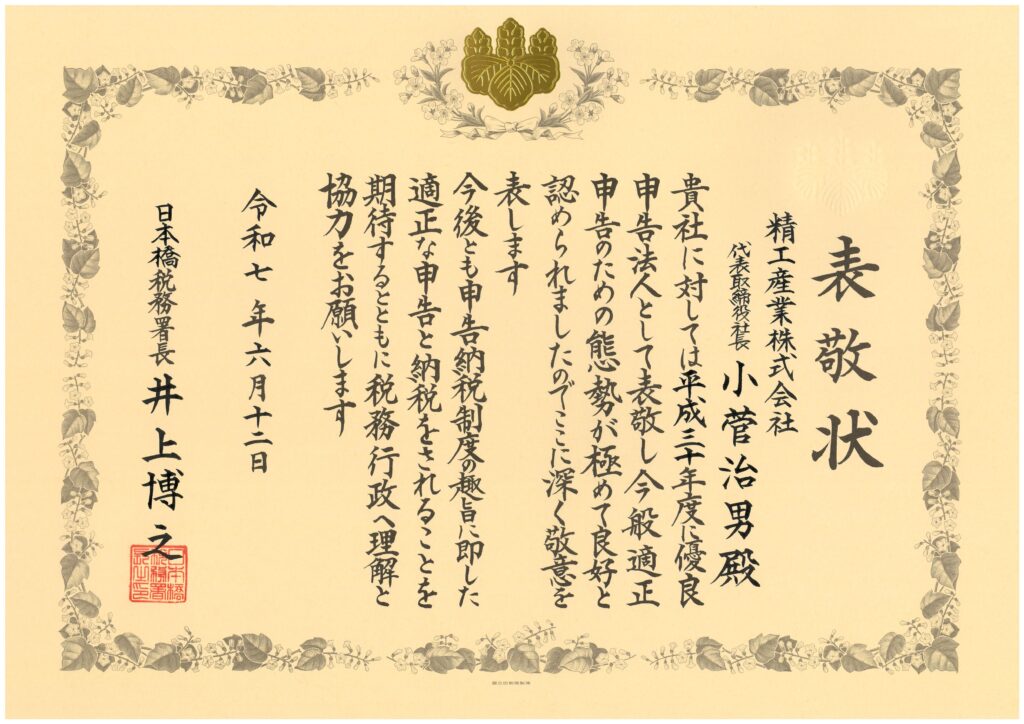 表敬状
精工産業株式会社
代表取締役社長 小菅治男殿
貴社に対しては平成三十年度に優良
申告法人として表敬し今般適正
申告のための態勢が極めて良好と
認められましたのでここに深く敬意を
表します
今後とも申告納税制度の趣旨に即した
適正な申告と納税をされることを
期待するとともに税務行政へ理解と
協力をお願いします
令和七年六月十二日
日本橋税務署長 井上博之
日本橋
税務署
長之印
国立印刷局製造